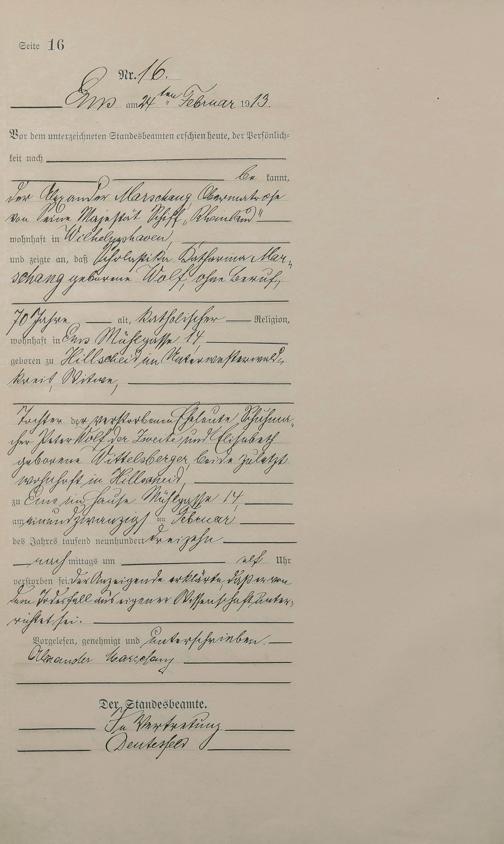 Seite 16
Nr. 16.
Ems am 24ten Februar 1913.
Vor dem unterzeichneten Standesbeamten erschien heute, der Persönlich-
keit nach
be kannt,
der Alexander Marschang, Obermatrose
von Seine Majestät Schiff „Rheinland"
wohnhaft in Wilhelmshaven,
und zeigte an, daß Scholastika Katharina Mar-
schang geborene Wolf, ohne Beruf,
70 Jahre alt, katholischer Religion,
wohnhaft in Ems Mühlgasse 14,
geboren zu Hillscheid im Unterwesterwald-
kreis, Witwe,
Tochter der verstorbenen Eheleute Schuhma-
cher Peter Wolf der Zweite und Elisabeth
geborene Wittelsberger, beide zuletzt
wohnhaft in Hillscheid,
zu Ems im Hause Mühlgasse 14,
am einundzwanzigsten Februar
des Jahres tausend neunhundert dreizehn
nach mittags um elf Uhr
verstorben sei. Der Anzeigende erklärte, daß er von
dem Todesfall aus eigener Wissenschaft unter-
richtet sei.
Vorgelesen, genehmigt und unterschrieben.
Alexander Marschang
Der Standesbeamte.
In Vertretung